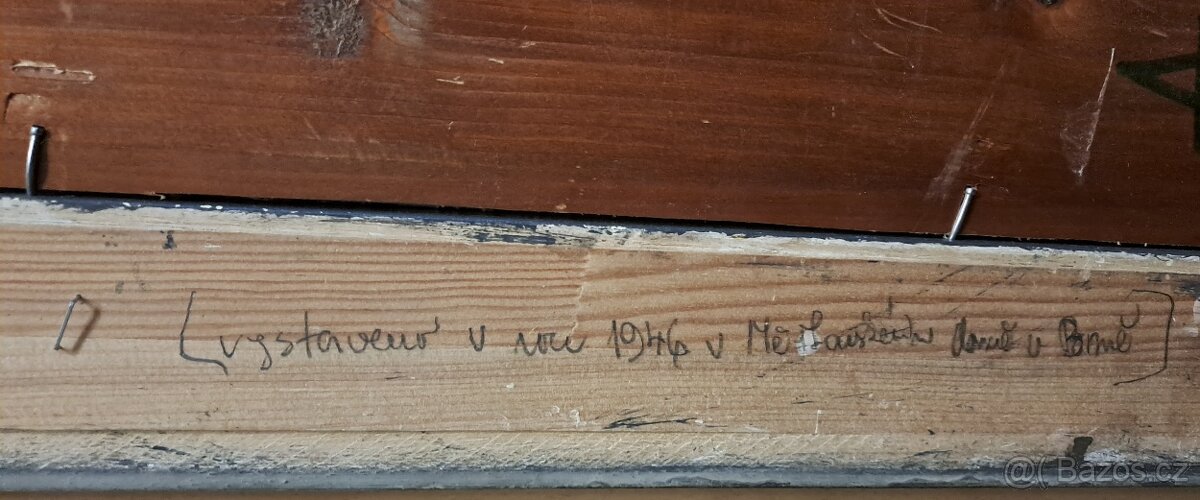 [vystaveno v roce 1946 v Měšťanském domě v Brně]
@( Bazoš.cz